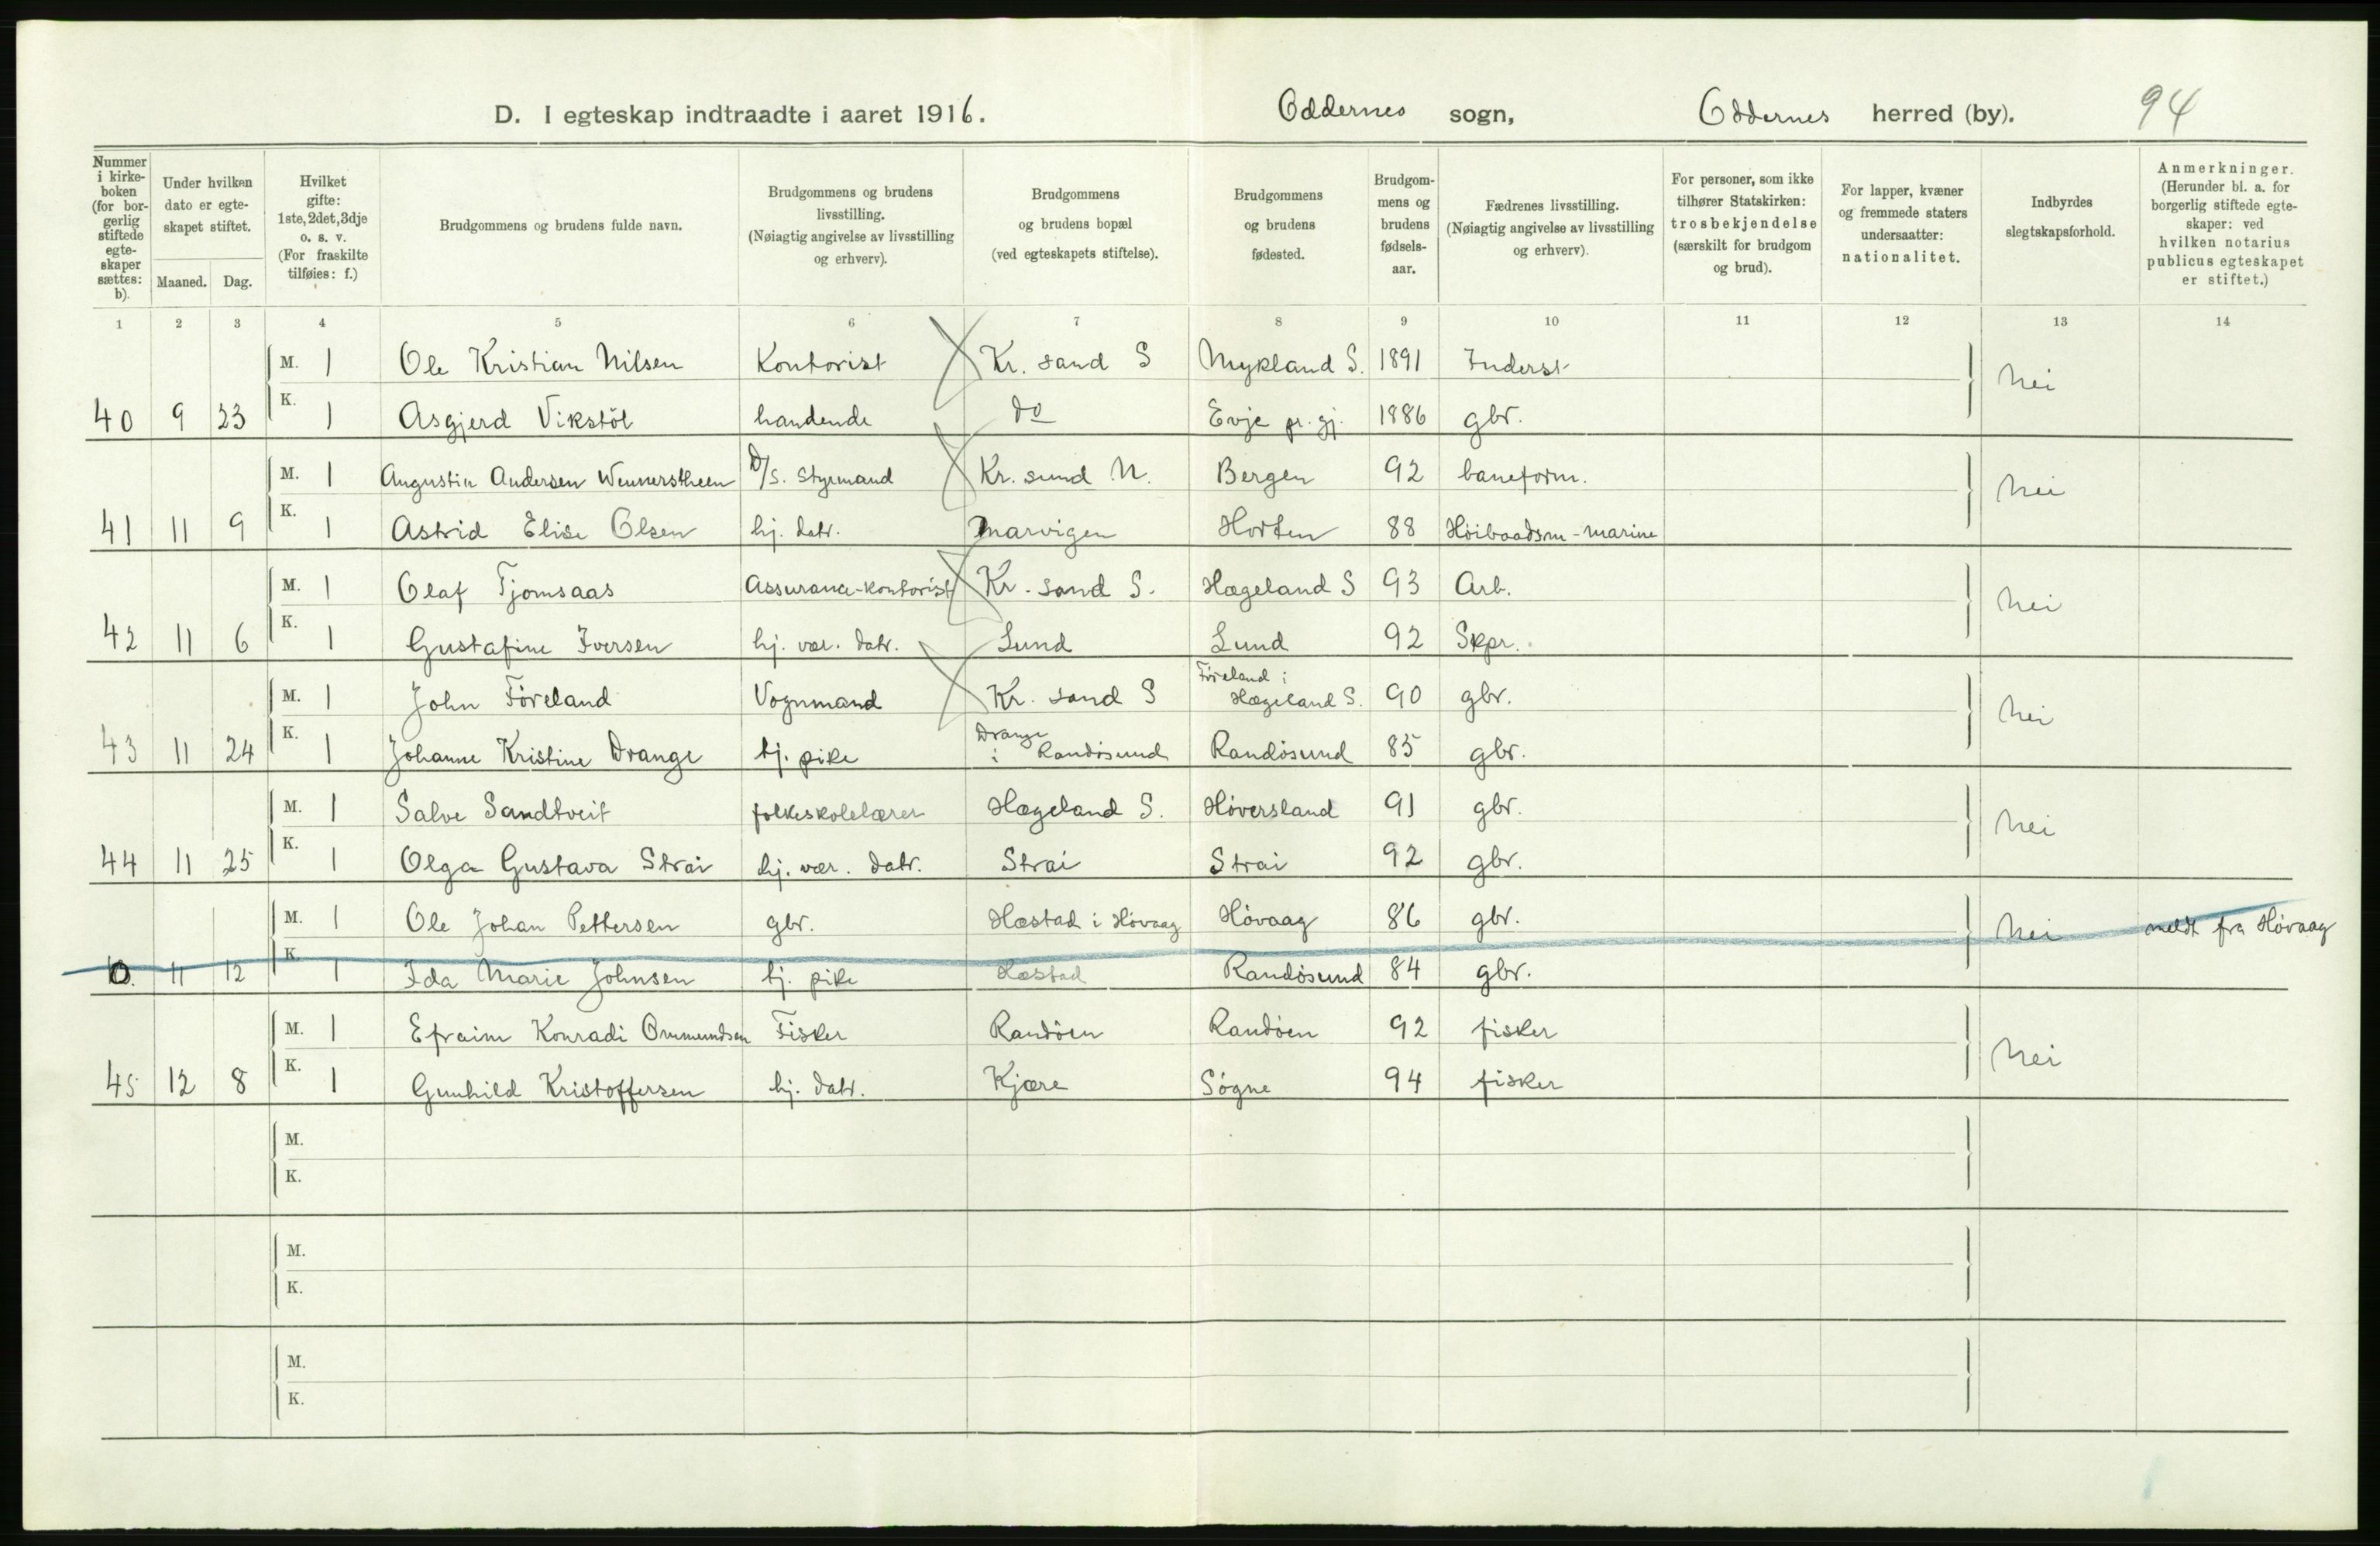 D. I egteskap indtraadte i aaret 1916. Oddernes sogn, Oddernes herred (by). 94
Nummer i kirkeboken (for borgerlig stiftede egteskaper sættes: b).
Under hvilken dato er egteskapet stiftet.
Maaned. Dag.
Hvilket gifte: 1ste, 2det, 3dje o. s. v. (For fraskilte tilføies: f.)
Brudgommens og brudens fulde navn.
Brudgommens og brudens livsstilling. (Nøiagtig angivelse av livsstilling og erhverv).
Brudgommens og brudens bopæl (ved egteskapets stiftelse).
Brudgommens og brudens fødested.
Brudgommens og brudens fødselsaar.
Fædrenes livsstilling. (Nøiagtig angivelse av livsstilling og erhverv).
For personer, som ikke tilhører Statskirken: trosbekjendelse (særskilt for brudgom og brud).
For lapper, kvæner og fremmede staters undersaatter: nationalitet.
Indbyrdes slegtskapsforhold.
Anmerkninger. (Herunder bl. a. for borgerlig stiftede egteskaper: ved hvilken notarius publicus egteskapet er stiftet.)
1 2 3 4 5 6 7 8 9 10 11 12 13 14
M. 1 Ole Kristian Nilsen Kontorist Kr. sand S Mykland S. 1891 Inderst nei
40 9 23 K. 1 Asgjerd Vikstöl handende do Evje pr. gj. 1886 gbr.
M. 1 Augustin Andersen Wennerstheen D/S. Styrmand Kr. sund N. Bergen 92 baneform. nei
41 11 9 K. 1 Astrid Elise Olsen hj. datr. Marvigen Horten 88 Höibaadsm-marine
M. 1 Olaf Tjomsaas Assurance-kontorist Kr. sand S. Hægeland S 93 Arb. nei
42 11 6 K. 1 Gustafine Iversen hj. vær. datr. Lund Lund 92 Skpr.
M. 1 John Föreland Vognmand Kr. sand S Föreland i Hægeland S. 90 gbr. nei
43 11 24 K. 1 Johanne Kristine Drange tj. pike Drange i Randösund Randösund 85 gbr.
M. 1 Salve Sandtveit folkeskolelærer Hægeland S. Höversland 91 gbr. nei
44 11 25 K. 1 Olga Gustava Strai hj. vær. datr. Strai Strai 92 gbr.
M. 1 Ole Johan Pettersen gbr. Hæstad i Hövaag Hövaag 86 gbr. nei meldt fra Hövaag
0. 11 12 K. 1 Ida Marie Johnsen tj. pike Hæstad Randösund 84 gbr.
M. 1 Efraim Konradi Ommundsen Fisker Randöen Randöen 92 fisker nei
45 12 8 K. 1 Gunhild Kristoffersen hj. datr. Kjære Sögne 94 fisker
M.
K.
M.
K.
M.
K.